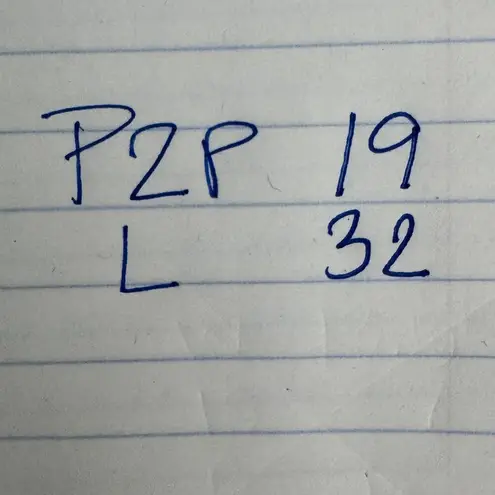 P2P 19
L 32